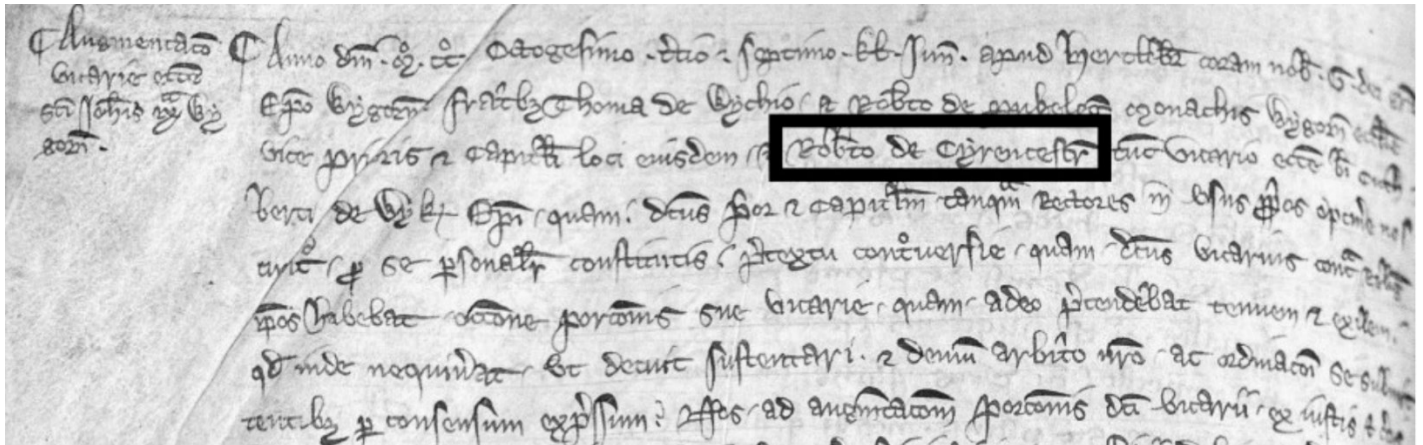 Augmentacō
vicarie eccē
sci Joħis ... Wy
gorn̄.
Anno dn̄i . m̊ . cc̊ Octogesimo . t̄cio . septimo . kl̄ . Jun̄ . apud hertlebr̄ coram nob . G . dei gr̄a
Ep̄o Wygorn̄ . fratrib Thoma de Wychio . ⁊ Rob̄to de monachis Wygorn̄ eccl̄e
vice prioris ⁊ Capitl̄i loci eiusdem . ⁊ Rob̄to de Cyrencestr̄ tūc vicario eccē b̄i Cuth
berti de Wyk Ep̄i . quam . dc̄us p̄or ⁊ Capitl̄m tanq̄m Rectores in usus p̄pos optin̄e
p se p̄sonalr̄ constitutis . p̄textu cont̊versie . quam . dc̄us vicarius cont̄
ip̄os habebat occōne porcōnis sue vicarie . quam . adeo p̄tendebat tenuem ⁊ exilem .
qd̄ inde nequiv̄at . ut decuit sustentari . ⁊ demū arbit̄o nr̄o . ac ordinacōi se sub
tentib p consensum exp̄ssum . Nos . ad augm̄tacōem porcōnis dc̄i vicarii . ex iustis ⁊